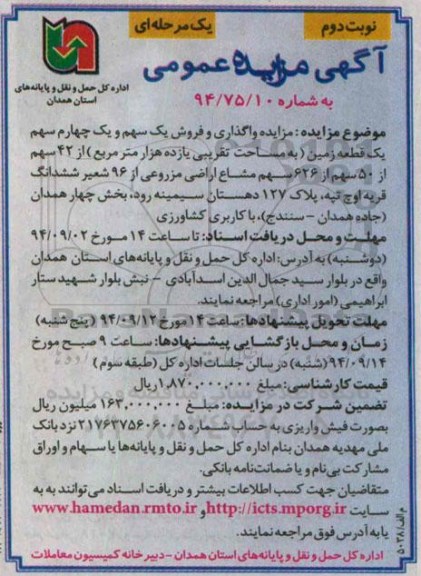 نوبت دوم
یک مرحله‌ای
آگهی مزایده عمومی
به شماره ۹۴/۷۵/۱۰
اداره کل حمل و نقل و پایانه‌های
استان همدان
موضوع مزایده: مزایده واگذاری و فروش یک سهم و یک چهارم سهم
یک قطعه زمین (به مساحت تقریبی یازده هزار متر مربع) از ۴۲ سهم
از ۵۰ سهم از ۶۲۶ سهم مشاع اراضی مزروعی از ۹۶ شعیر ششدانگ
قریه اوچ تپه، پلاک ۱۲۷ دهستان سیمینه رود، بخش چهار همدان
(جاده همدان - سنندج)، با کاربری کشاورزی
مهلت و محل دریافت اسناد: تا ساعت ۱۴ مورخ ۹۴/۰۹/۰۲
(دوشنبه) به آدرس: اداره کل حمل و نقل و پایانه‌های استان همدان
واقع در بلوار سید جمال الدین اسدآبادی - نبش بلوار شهید ستار
ابراهیمی (امور اداری) مراجعه نمایند.
مهلت تحویل پیشنهادها: ساعت ۱۴ مورخ ۹۴/۰۹/۱۲ (پنج شنبه)
زمان و محل بازگشایی پیشنهادها: ساعت ۹ صبح مورخ
۹۴/۰۹/۱۴ (شنبه) در سالن جلسات اداره کل (طبقه سوم)
قیمت کارشناسی: مبلغ ۱,۸۷۰,۰۰۰,۰۰۰ ریال
تضمین شرکت در مزایده: مبلغ ۱۶۳,۰۰۰,۰۰۰ میلیون ریال
بصورت فیش واریزی به حساب شماره ۲۱۷۶۳۷۵۶۰۶۰۰۵ نزد بانک
ملی مهدیه همدان بنام اداره کل حمل و نقل و پایانه‌ها یا سهام و اوراق
مشارکت بی‌نام و یا ضمانت‌نامه بانکی.
متقاضیان جهت کسب اطلاعات بیشتر و دریافت اسناد می‌توانند به به
سایت http://icts.mporg.ir و www.hamedan.rmto.ir
یا به آدرس فوق مراجعه نمایند.
اداره کل حمل و نقل و پایانه‌های استان همدان - دبیرخانه کمیسیون معاملات
م الف/۵۰۳۸